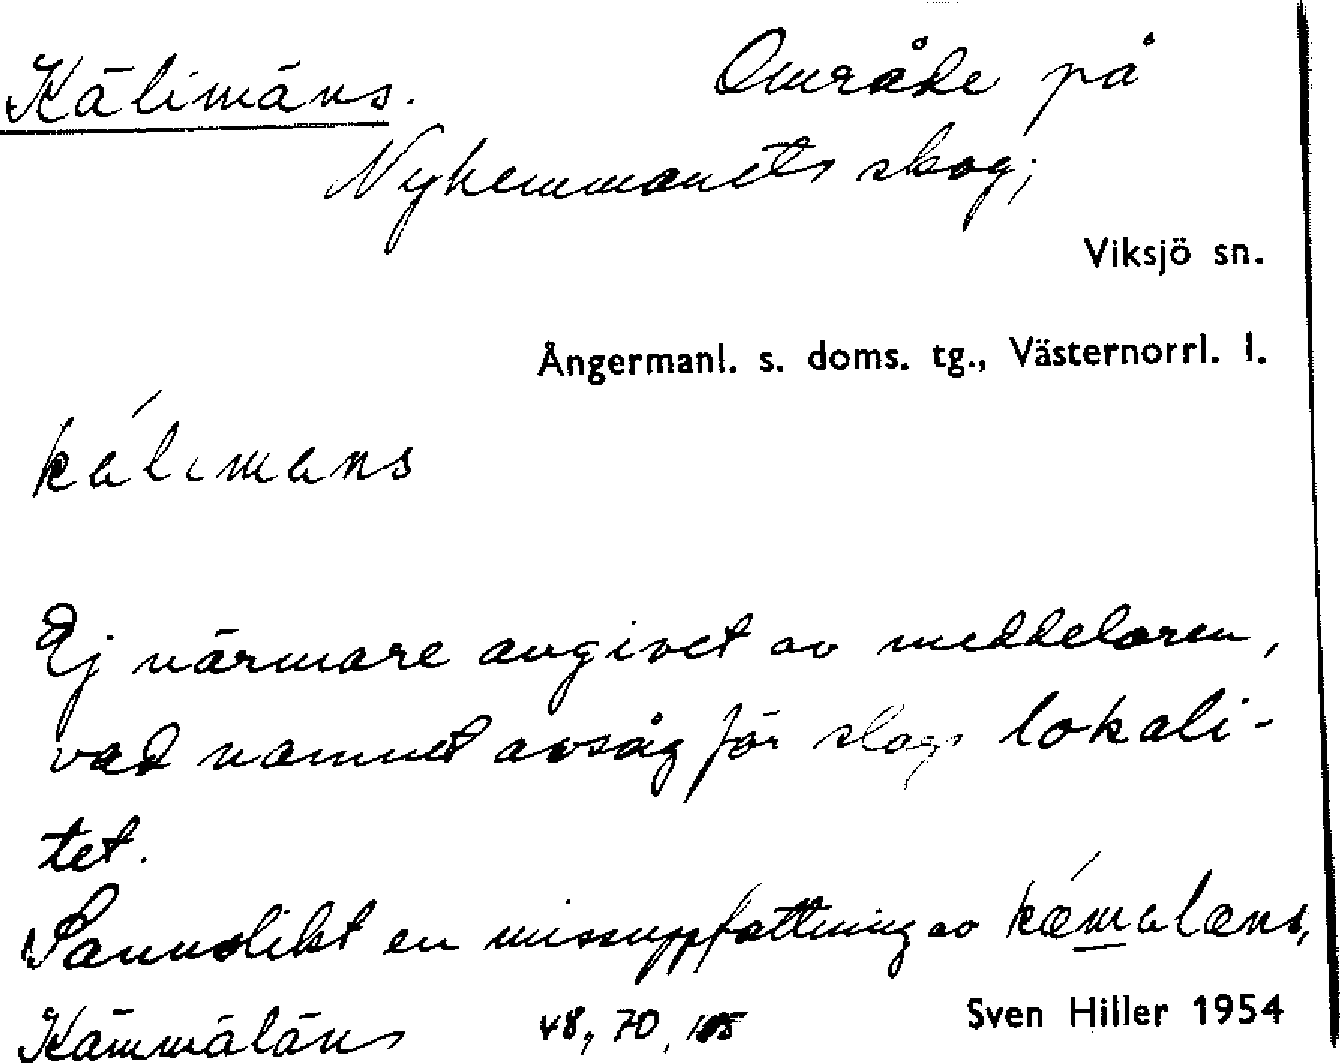 Kälimäns. Område på
Nyhemmanets skog;
Viksjö sn.
Ångermanl. s. doms. tg., Västernorrl. l.
kálımans
Ej närmare angivet av meddelaren,
vad namnet avsåg för slags lokali-
tet.
Sannolikt en missuppfattning av kǽmalæns,
Kämmäläns 48, 70, 105
Sven Hiller 1954